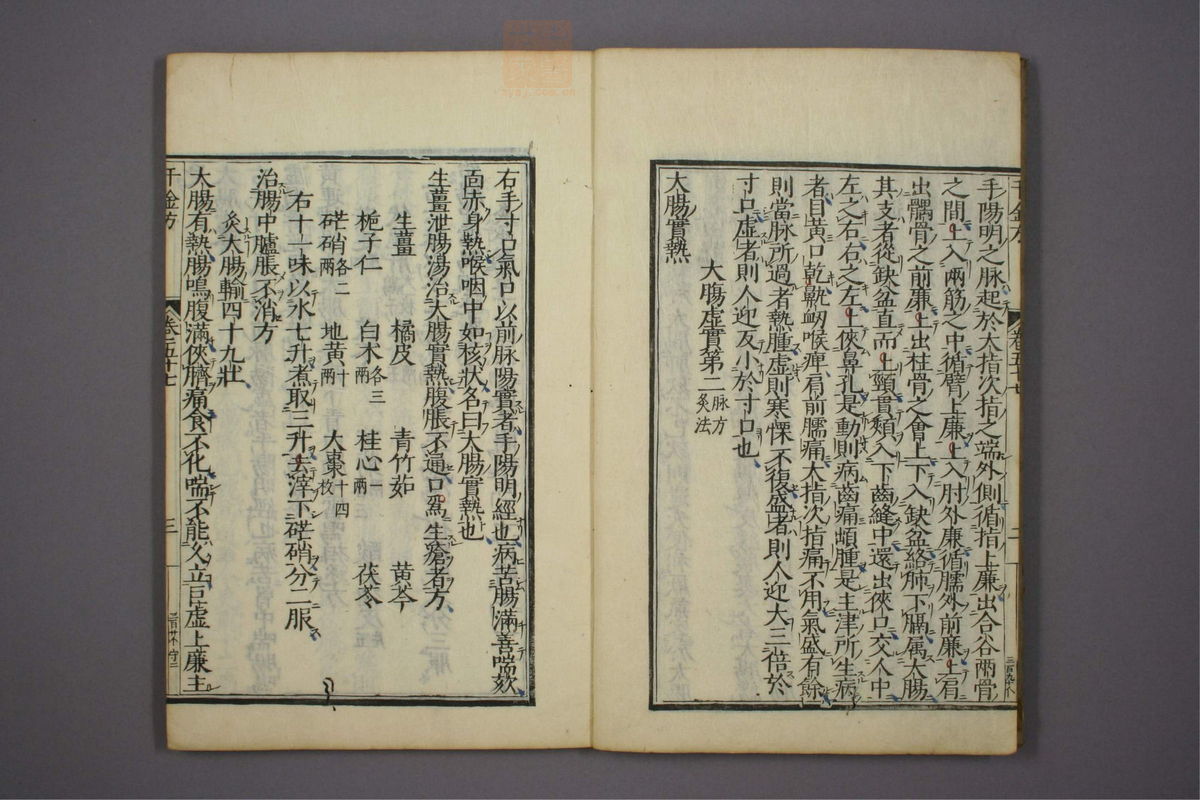 手陽明之脉起於大指次指之端外側循指上廉出合谷兩骨
之間上入兩筋之中循臂上廉上入肘外廉循臑外前廉上肩
出髃骨之前廉上出柱骨之會上下入缺盆絡肺下膈属大腸
其支者從缺盆直而上頸貫頰入下齒縫中還出俠口交人中
左之右右之左上俠鼻孔是動則病齒痛䪼腫是主津所生病
者目黃口乾鼽衂喉痺肩前臑痛大指次指痛不用氣盛有餘
則當脉所過者熱腫虚則寒慄不復盛者則人迎大三倍於
寸口虚者則人迎反小於寸口也
大腸虚實第二 脉 方 灸法
大腸實熱
右手寸口氣口以前脉陽實者手陽明經也病苦腸滿善喘欬
面赤身熱喉咽中如核狀名曰大腸實熱也
生薑泄腸湯治大腸實熱腹脹不通口為生瘡者方
生薑 橘皮 青竹茹 黄芩
梔子仁 白术各三兩 桂心一兩 茯苓
芒硝各二兩 地黄十兩 大棗十四枚
右十一味以水七升煮取三升去滓下芒硝分二服
治腸中臚脹不消方
灸大腸輸四十九壯
大腸有熱腸鳴腹滿俠臍痛食不化喘不能久立巨虚上廉主
千金方
卷五十七
三